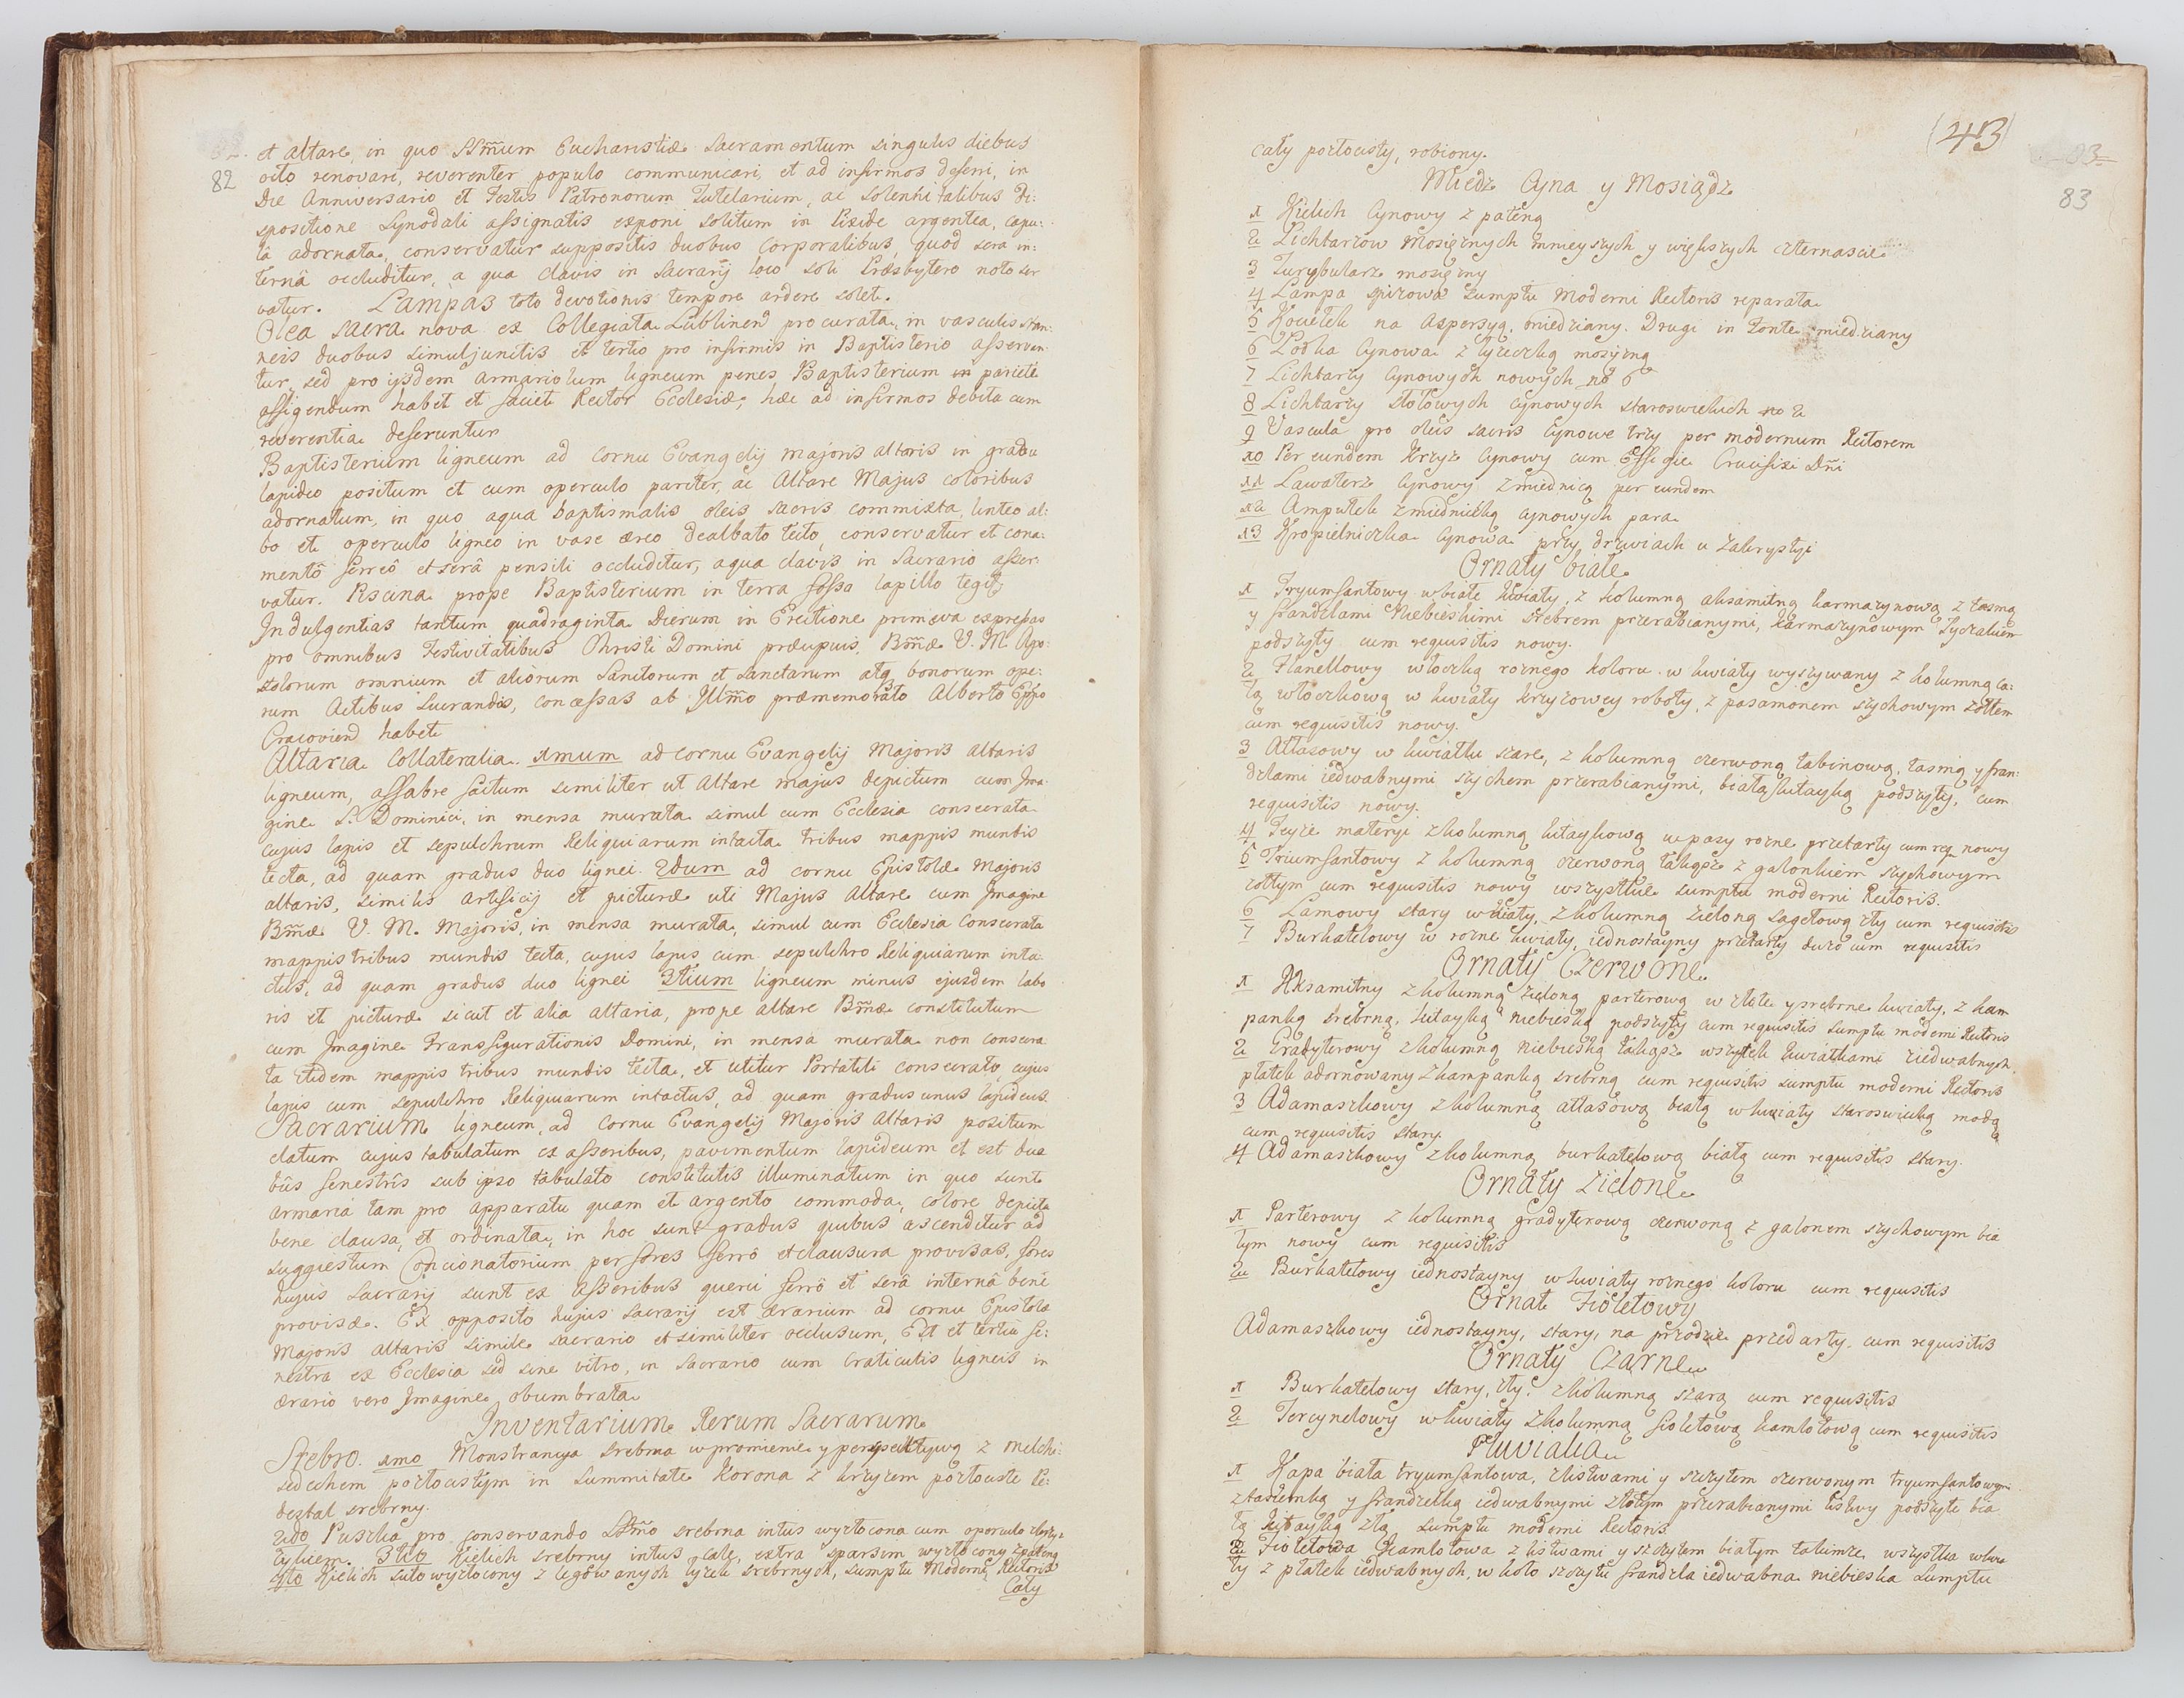 82
et altare, in quo SSm̃um Eucharistiæ Sacramentum singulis diebus
octo renovari, reverenter populo communicari, et ad infirmos deferri, in
Die Anniversario et Festis Patronorum Tutelarium, ac solennitatibus Di:
spositione Synodali assignatis exponi solitum in Pixide argentea, capu:
lâ adornata, conservatur suppositis duobus Corporalibus, quod sera in:
ternâ occluditur, a qua clavis in Sacrarij loco soli Præsbytero noto ser
vatur. Lampas toto devotionis tempore ardere solet.
Olea sacra nova ex Collegiata Lublinen̄ procurata, in vasculis stan:
neis duobus simul junctis et tertio pro infirmis in Baptisterio asservan:
tur, sed pro ijsdem armariolum ligneum penes Baptisterium in pariete
affigendum habet et faciet Rector Ecclesiæ, hæc ad infirmos debita cum
reverentia deferuntur
Baptisterium ligneum ad cornu Evangelij majoris altaris in gradu
lapideo positum et cum operculo pariter, ac Altare Majus coloribus
adornatum, in quo aqua baptismalis oleis sacris commixta, linteo al:
bo et operculo ligneo in vase æreo dealbato tecto, conservatur et cona:
mentô ferreô et serâ pensili occluditur, a qua clavis in Sacrario asser:
vatur. Piscina prope Baptisterium in terra fossa lapillo tegit
Indulgentias tantum quadraginta Dierum in Erectione primæva expressas
pro omnibus Festivitatibus Christi Domini præcipuis, Bm̃æ V. M. Apo:
stolorum omnium et aliorum Sanctorum et Sanctarum atq bonorum ope:
rum Actibus lucrandas, concessas ab Illm̃o præmemorato Alberto Eppo
Cracovien̄ habet
Altaria Collateralia. 1mum ad cornu Evangelij Majoris altaris
ligneum, affabre factum similiter ut Altare majus depictum cum Ima
gine S. Dominici, in mensa murata simul cum Ecclesia consecrata
cujus lapis et sepulchrum Reliquiarum intacta tribus mappis mundis
tecta, ad quam gradus duo lignei. 2dum ad cornu Epistolæ Majoris
altaris, similis artificij et picturæ uti Majus Altare cum Imagine
Bm̃æ V. M. Majoris, in mensa murata, simul cum Ecclesia Consecrata
mappis tribus mundis tecta, cujus lapis cum sepulchro Reliquiarum inta:
ctus, ad quam gradus duo lignei 3tium ligneum minus ejusdem labo
ris et picturæ sicut et alia altaria, prope altare Bm̃æ constitutum
cum Imagine Transfigurationis Domini, in mensa murata non consecra
ta itidem mappis tribus mundis tecta, et utitur Portatili consecrato, cujus
lapis cum sepulchro Reliquiarum intactus, ad quam gradus unus lapideus
Sacrarium ligneum, ad Cornu Evangelij Majoris Altaris positum
elatum cujus tabulatum ex asseribus, pavimentum lapideum et est dua
bûs fenestrîs sub ipso tabulato constitutis illuminatum in quo sunt
armaria tam pro apparatu quam et argento commoda, colore depicta
bene clausa, et ordinata, in hoc sunt gradus quibus ascenditur ad
suggestum Concionatorium per fores ferrô et clausura provisas, fores
hujus Sacrarij sunt ex asseribus querci ferrô et serâ internâ bene
provisæ. Ex opposito hujus Sacrarij est ærarium ad cornu Epistolæ
Majoris altaris simile sacrario et similiter occlusum, Est et tertia fe:
nestra ex Ecclesia sed sine vitro, in Sacrario cum Craticulis ligneis in
ærario vero Imagine obumbrata
Inventarium Rerum Sacrarum
Srebro. 1mo Monstrancya srebrna w promienie y perspektywą z Melchi:
sedechem pozłocistym in summitate Korona z krzyzem pozłociste Pi:
destal srebrny.
2do Puszka pro conservando SSm̃o srebrna intus wyzłocona cum operculo
3tio Kielich srebrny intus cale, extra sparsim wyzłocony z pateną
4to Kielich suto wyzłocony z legowanych łyżek srebrnych, sumptu Moderni Rectoris
Cały
(43)
83
cały pozłocisty, robiony.
Miedz Cyna y Mosiądz
1 Kielich Cynowy z pateną
2 Lichtarzow Mosiężnych mnieyszych y większych czternascie
3 Turybularz mosiężny
4 Lampa spiżowa sumptu Moderni Rectoris reparata
5 Kociełek na Aspersyą, miedziany. Drugi in Fonte miedziany
6 Łodka Cynowa z łyżeczką mosiężną
7 Lichtarzy Cynowych nowych no 6
8 Lichtarzy stołowych cynowych staroswieckich no 2
9 Vascula pro oleis sacris Cynowe trzy per modernum Rectorem
10 Per eundem Krzyż Cynowy cum Effigie Crucifixi Dñi
11 Lawaterz Cynowy z miednicą per eundem
12 Ampułek z miedniczką cynowych para
13 Kropielniczka Cynowa przy drzwiach u Zakrystyi
Ornaty białe
1 Tryumfantowy w białe kwiaty, z kolumną aksamitną karmazynową z tasmą
y frandzlami Niebieskimi srebrem przerabianymi, karmazynowym Tyczakiem
podszyty cum requisitis nowy.
2 Flanellowy włoczką roznego koloru w kwiaty wyszywany z kolumną ca:
łą włoczkową w kwiaty krzyzowey roboty, z pasamonem szychowym zołtem
cum requisitis nowy.
3 Attasowy w kwiatki szare, z kolumną czerwoną tabinową, tasmą y fran:
dzlami iedwabnymi szychem przerabianymi, białą kitayką podszyty, cum
requisitis nowy.
4 Teyże materyi z kolumną kitaykową w pasy rozne przetarty cum req nowy
5 Triumfantowy z kolumną czerwoną takąsz z galonkiem szychowym
zołtym cum requisitis nowy wszystkie sumptu moderni Rectoris.
6 Lamowy stary w kwiaty, z kolumną zieloną sagetową zły cum requisitis
7 Burkatelowy w rozne kwiaty, iednostayny przetarty duzo cum requisitis
Ornaty Czerwone
1 Aksamitny z kolumną zieloną parterową w złote y srebrne kwiaty, z kam
panką srebrną, kitayką niebieską podszyty cum requisitis sumptu moderni Rectoris
2 Gradyterowy z kolumną niebieską takąsz wszytek kwiatkami z iedwabnych
płatek adornowany z kampanką srebrną cum requisitis sumptu moderni Rectoris
3 Adamaszkowy z kolumną attasową białą w kwiaty staroswiecką modą
cum requisitis stary.
4 Adamaszkowy z kolumną burkatelową białą cum requisitis stary.
Ornaty Zielone
1 Parterowy z kolumną gradyterową czerwoną z galonem szychowym bia
łym nowy cum requisitis
2 Burkatelowy iednostayny w kwiaty roznego koloru cum requisitis
Ornat Fioletowy
Adamaszkowy iednostayny, stary, na przodzie przedarty. cum requisitis
Ornaty Czarne
1 Burkatelowy stary, zły. z kolumną szarą cum requisitis
2 Tercynelowy w kwiaty z kolumną fioletową kamlotową cum requisitis
Pluvialia
1 Kapa biała tryumfantowa, z listwami y szczytem czerwonym tryumfantowym
z tasiemką y frandzelką iedwabnymi złotym przerabianymi listwy podszyte bia
łą kitayką złą sumptu moderni Rectoris
2 Fioletowa Kamlotowa z listwami y szczytem białym takimże wszystka w kwia
ty z płatek iedwabnych, w koło szczytu frandzla iedwabna niebieska sumptu